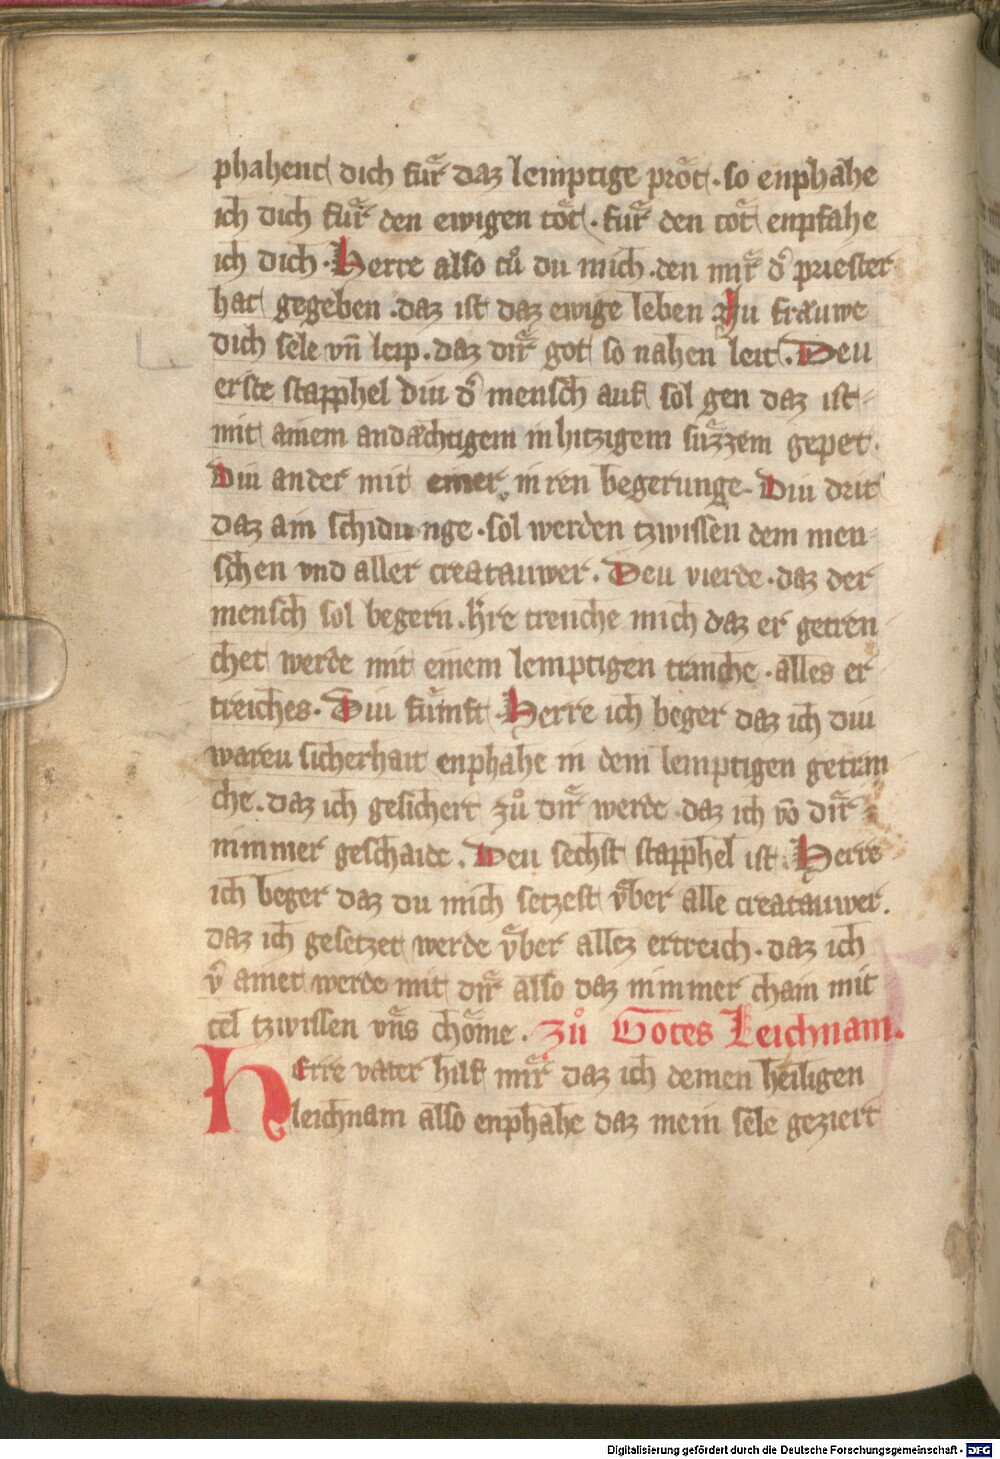 phahent dich fuͤr daz lemptige proͤt · so enphahe
ich dich fuͤr den ewigen toͤt · fuͤr den toͤt enpfahe
ich dich · Herre also tuͦ du mich · den mir dˢ priester
hat gegeben · daz ist daz ewige leben Nu fraͤuwe
dich sele vn̄ leip · daz dir got so nahen leit · Deu
erste stapphel diu dˢ mensch auf sol gen daz ist
mit ainem andaͤchtigem inhitzigem suͤzzem gepet ·
Diu ander mit einer in ren begerunge · Diu drit
daz ain schidunge · sol werden tzwissen dem men
schen vnd aller creatauwer · Deu vierde · daz der
mensch sol begern · hˢre trenche mich daz er getren
chet werde mit einem lemptigen tranche · alles er
treiches · Diu fuͤmft · Herre ich beger daz ich diu
wareu sicherhait enphahe in dem lemptigen getrin
che · daz ich gesichert zuͦ dir werde · daz ich vō dir
nimmer geschaide · Deu sechst stapphel ist · Herre
ich beger daz du mich setzest vͤber alle creatauwer ·
daz ich gesetzet werde vͤber allez ertreich · daz ich
vˢ ainet werde mit dir also daz nimmer chain mit
tel tzwissen vns choͤme · Zuͦ Gotes Leichnam ·
Herre vater hilf mir daz ich deinen heiligen
leichnam also enphahe daz mein sele geziert
Digitalisierung gefördert durch die Deutsche Forschungsgemeinschaft - DFG